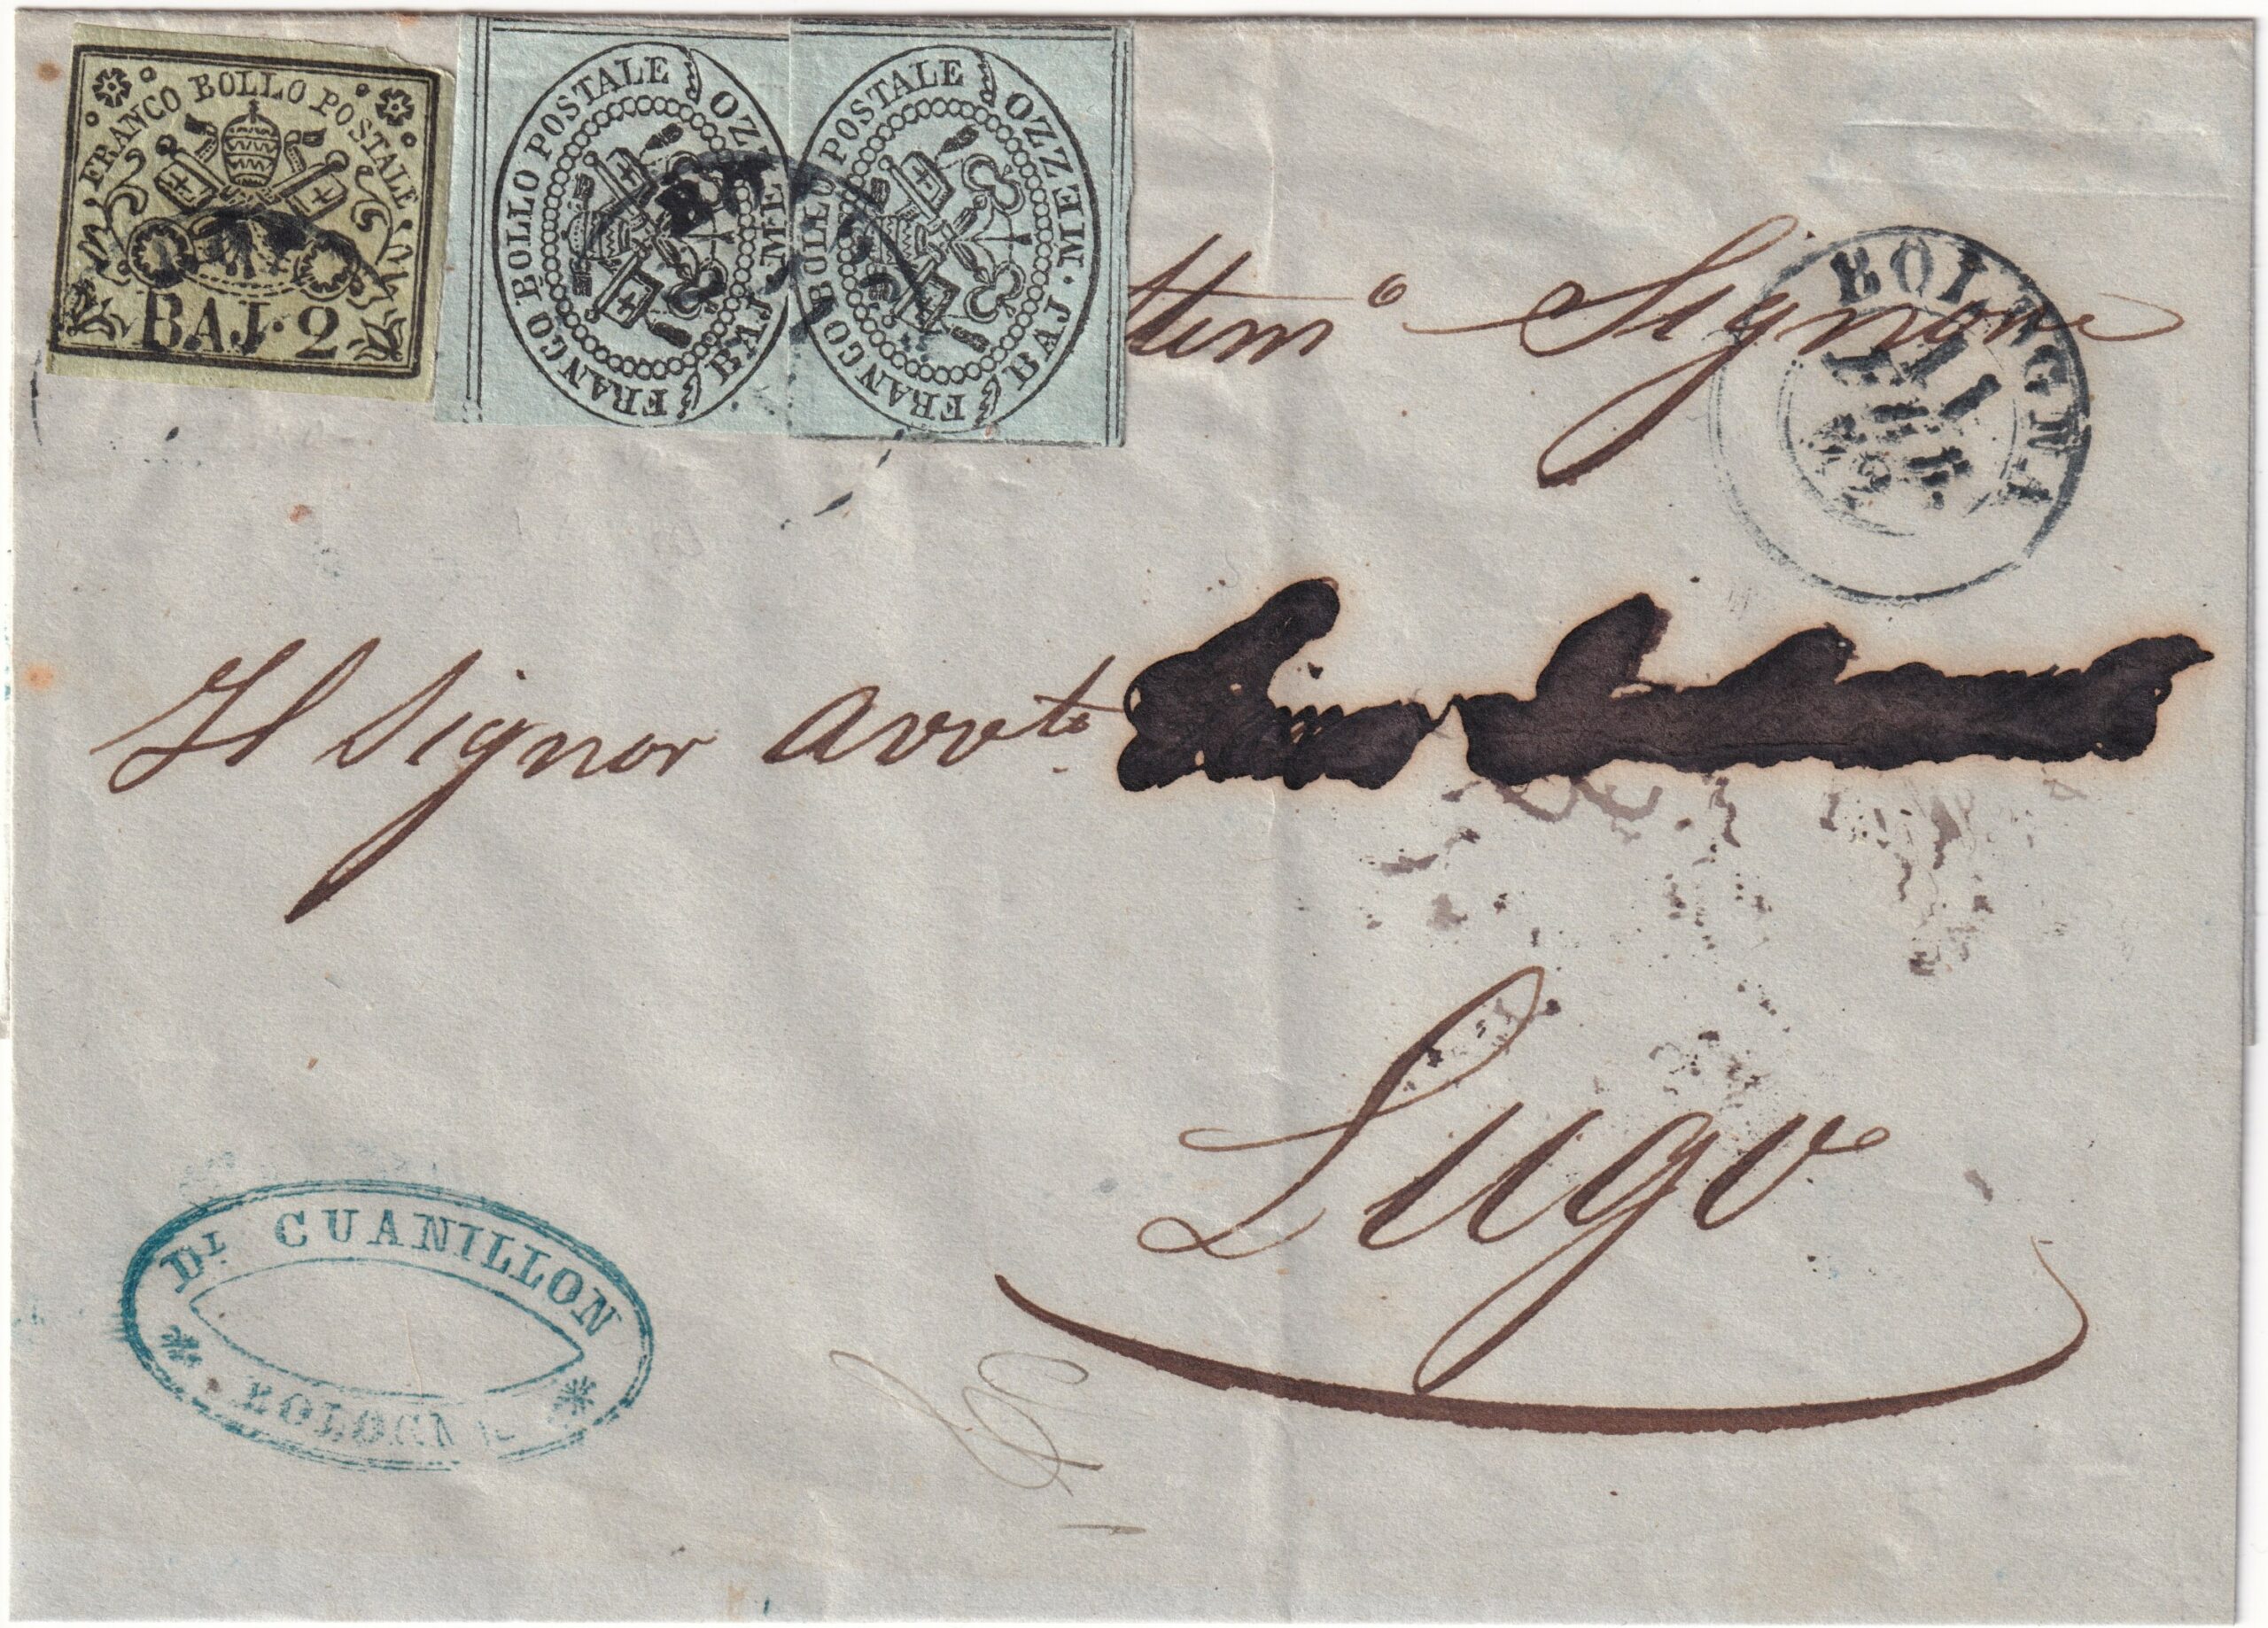 FRANCO BOLLO POSTALE
BAJ. 2
FRANCO BOLLO POSTALE
MEZZO BAJ.
FRANCO BOLLO POSTALE
MEZZO BAJ.
BOLOGNA
11
Signore
Il Signor Avvto
Lugo
DI CUANILLON
BOLOGNA